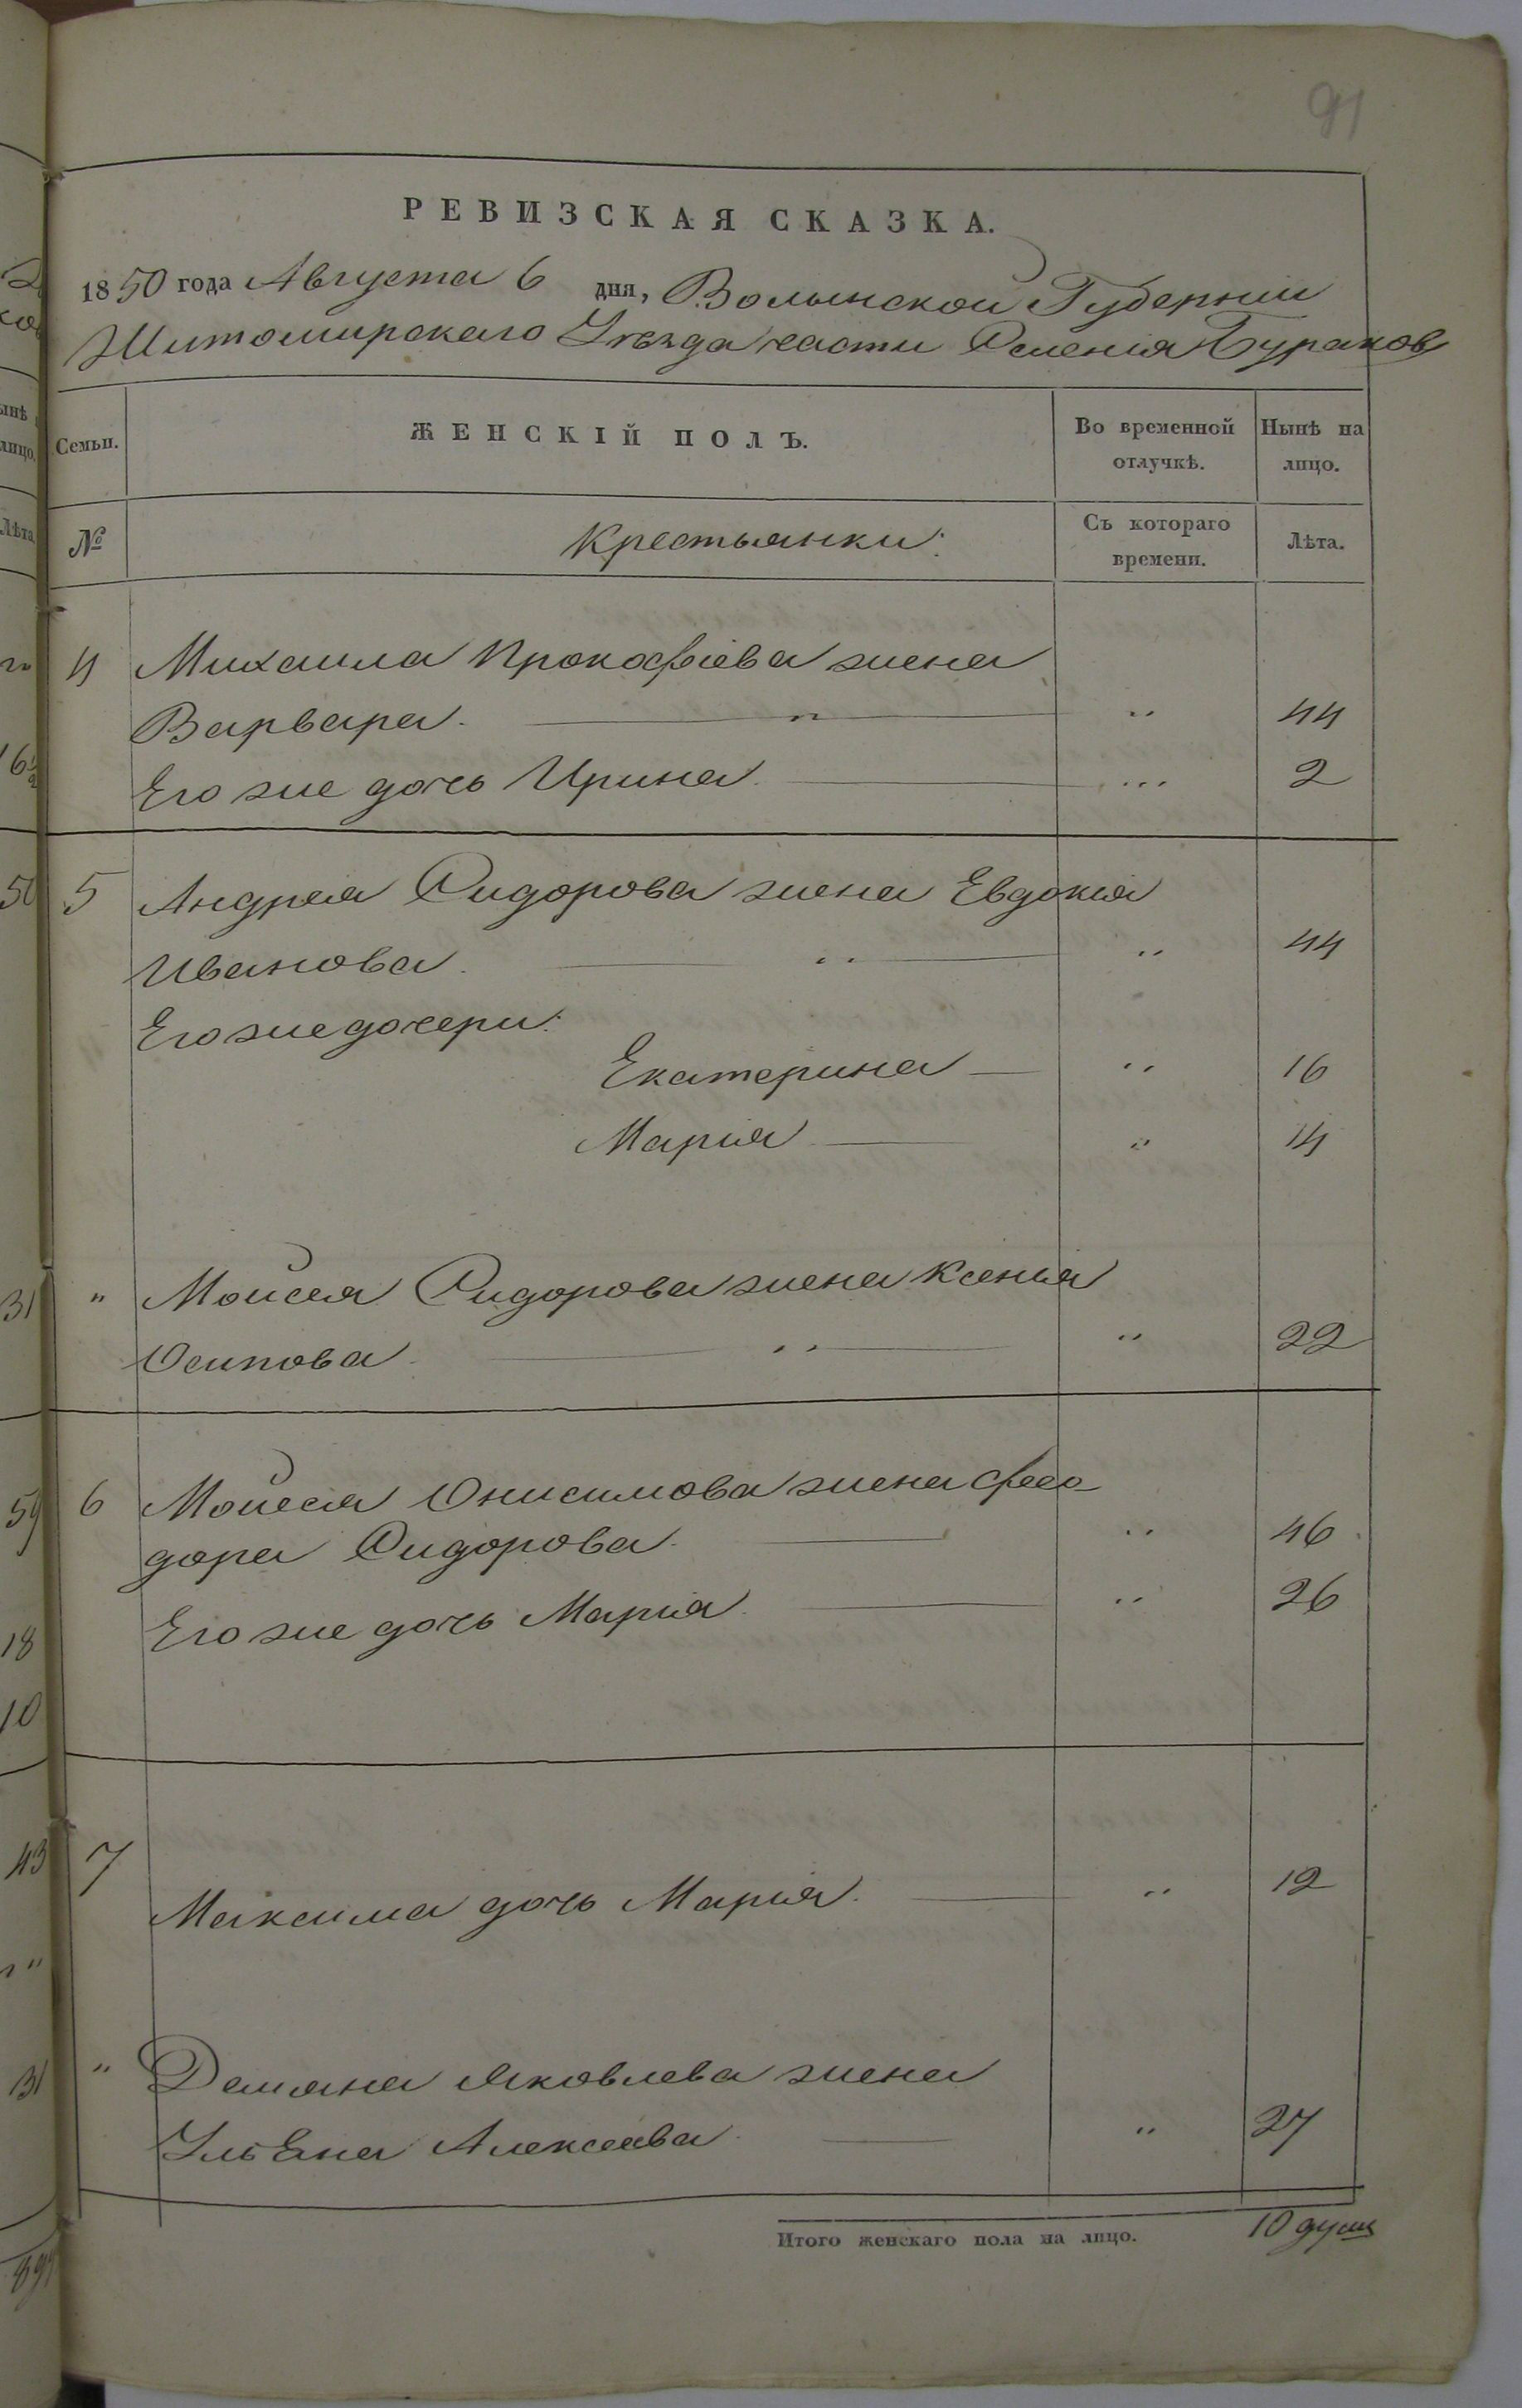 91
РЕВИЗСКАЯ СКАЗКА.
1850 года Августа 6 дня, Волынской Губернии
Житомирскаго Уезда части Селенія Бураков
Семьи. ЖЕНСКІЙ ПОЛЪ. Во временной отлучкѣ. Нынѣ на лицо.
№ Крестьянки: Съ котораго времени. Лѣта.
4 Михаила Прокофіева жена
Варвара. " " 44
Его же дочь Ирина. " 2
5 Андрея Сидорова жена Евдокія
Иванова. " " 44
Его же дочери:
Екатерина " 16
Марія " 14
" Моисея Сидорова жена Ксенія
Осипова " " 22
6 Моисея Онисимова жена Фео-
дора Сидорова. " 46
Его же дочь Марія. " 26
7
Максима дочь Марія. " 12
" Демяна Яковлева жена
Ульяна Алексеева " 27
Итого женскаго пола на лицо. 10 душъ